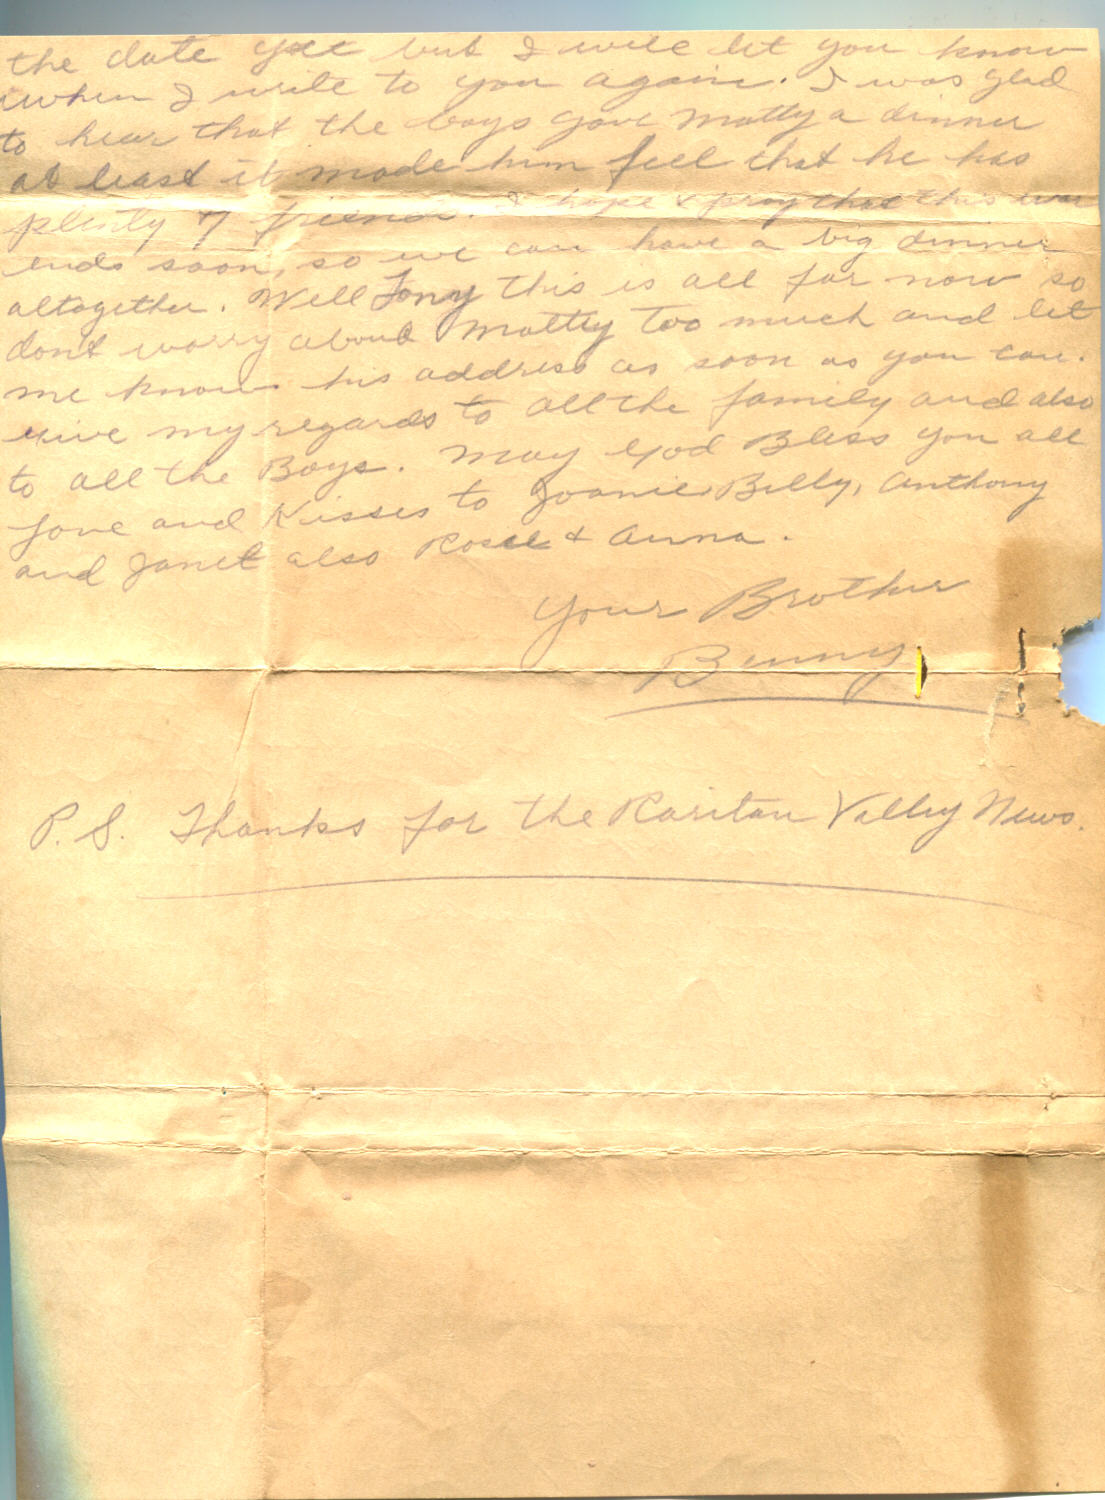 the date yet but I will let you know
when I write to you again. I was glad
to hear that the boys gave Matty a dinner
at least it made him feel that he has
plenty of friends. I hope & pray that this war
ends soon, so we can have a big dinner
altogether. Well Tony this is all for now so
dont worry about Matty too much and let
me know his address as soon as you can.
Give my regards to all the family and also
to all the Boys. May God Bless you all
Love and Kisses to Joanie, Billy, Anthony
and Janet also Rose & Anna.
Your Brother
Benny
P.S. Thanks for the Raritan Valley News.